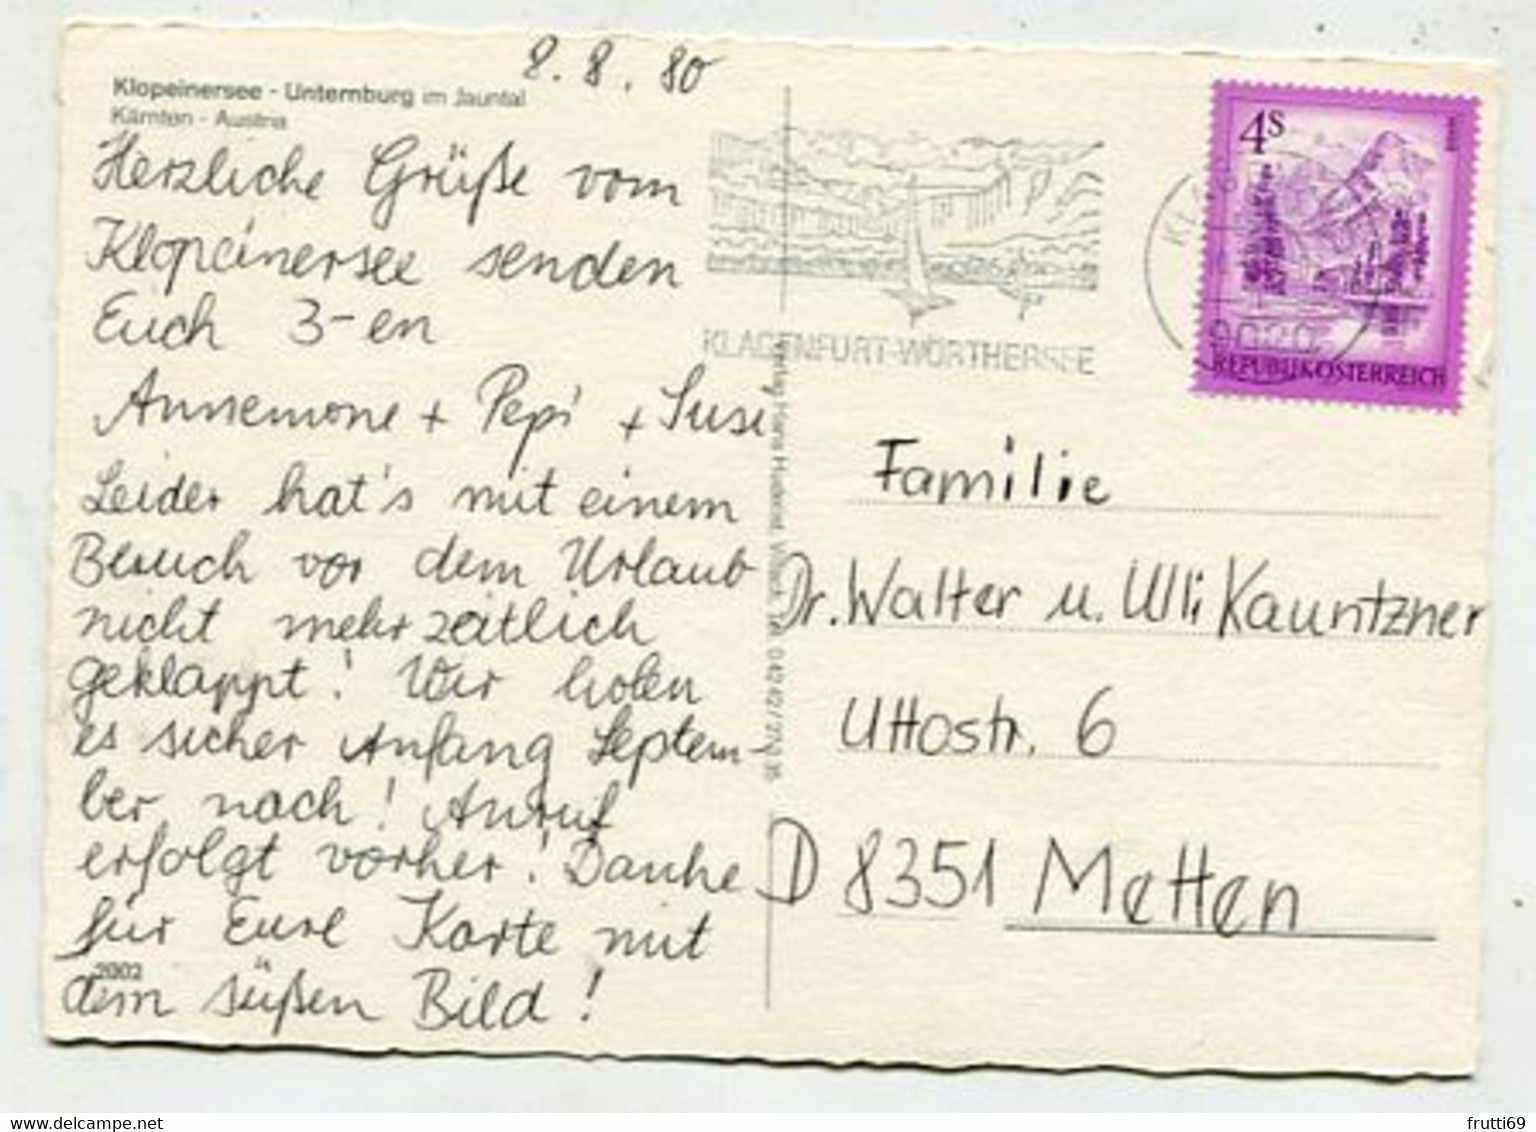 8.8.80
Klopeinersee - Unternburg im Jauntal
Kärnten - Austria
Herzliche Grüße vom
Klopeinersee senden
Euch 3-en
Annemone + Pepi + Susi
Leider hat's mit einem
Besuch vor dem Urlaub
nicht mehr zeitlich
geklappt! Wir holen
es sicher Anfang Septem-
ber nach! Anruf
erfolgt vorher! Danke
für Eure Karte mit
dem süßen Bild!
2002
KLAGENFURT-WÖRTHERSEE
4S
9020
REPUBLIK ÖSTERREICH
Verlag Hans Villach, Tel. 04242/27
Familie
Dr. Walter u. Ulli Kauntzner
Uttostr. 6
D 8351 Metten
www.delcampe.net
frutti69